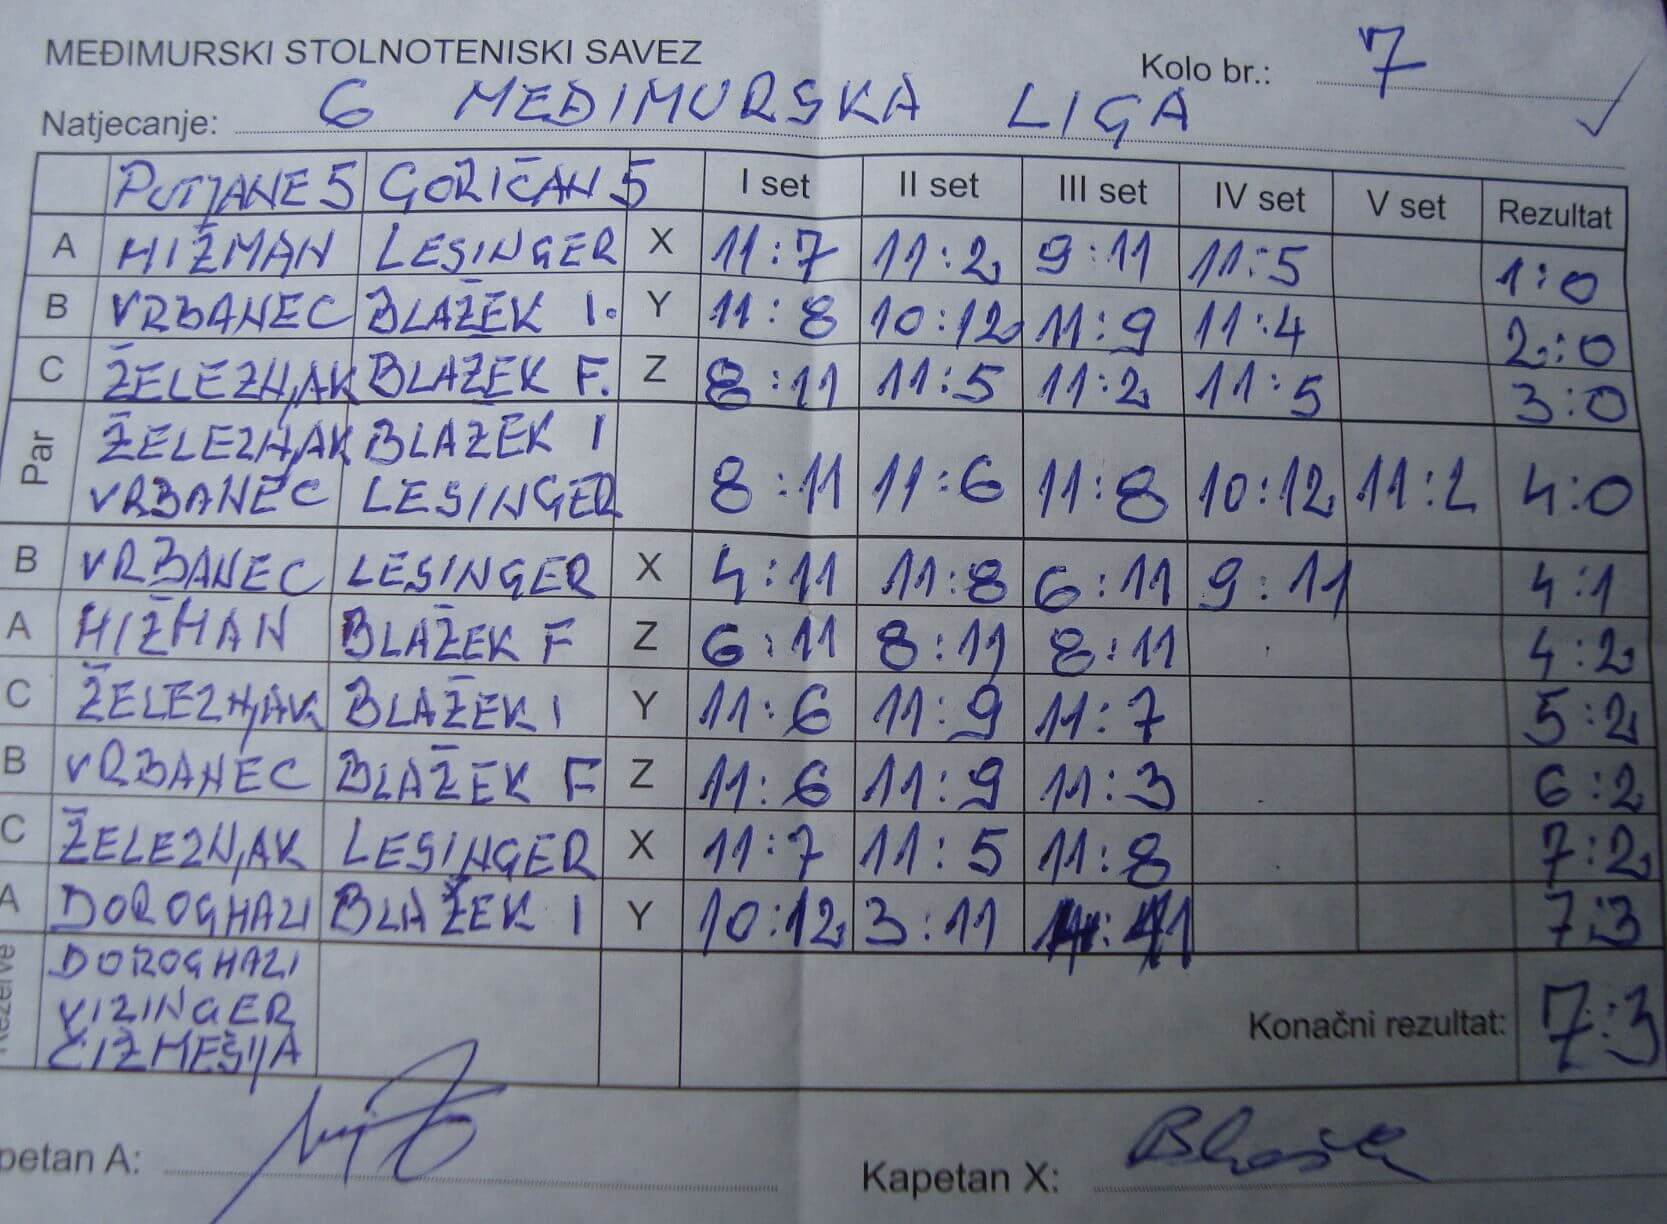 MEĐIMURSKI STOLNOTENISKI SAVEZ Kolo br.: 7
Natjecanje: 6 MEĐIMURSKA LIGA
PUTJANE 5 GORIČAN 5 I set II set III set IV set V set Rezultat
A HIŽMAN LESINGER X 11:7 11:2 9:11 11:5 1:0
B VRBANEC BLAŽEK I. Y 11:8 10:12 11:9 11:4 2:0
C ŽELEZNJAK BLAŽEK F. Z 8:11 11:5 11:2 11:5 3:0
Par ŽELEZNJAK BLAŽEK I
VRBANEC LESINGER 8:11 11:6 11:8 10:12 11:2 4:0
B VRBANEC LESINGER X 4:11 11:8 6:11 9:11 4:1
A HIŽMAN BLAŽEK F Z 6:11 8:11 8:11 4:2
C ŽELEZNJAK BLAŽEK I Y 11:6 11:9 11:7 5:2
B VRBANEC BLAŽEK F Z 11:6 11:9 11:3 6:2
C ŽELEZNJAK LESINGER X 11:7 11:5 11:8 7:2
A DOROGHAZI BLAŽEK I Y 10:12 3:11 7:3
DOROGHAZI
VIZINGER
ČIZMEŠIJA
Konačni rezultat: 7:3
petan A: Kapetan X: